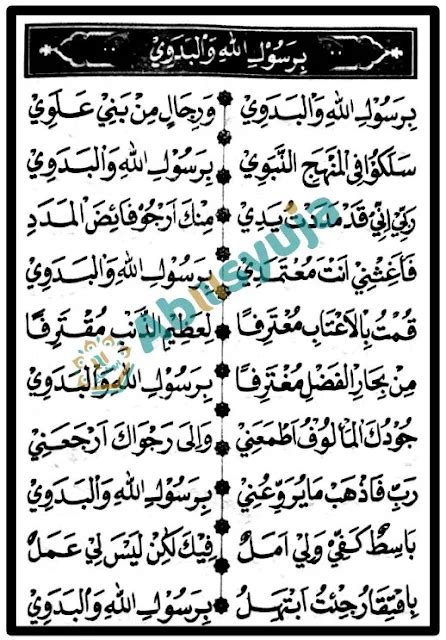 بِرَسُوْلِ اللهِ وَالْبَدَوِيْ
بِرَسُوْلِ اللهِ وَالْبَدَوِيْ وَرِجَالٍ مِنْ بَنِيْ عَلَوِيْ
سَلَكُوْا فِى الْمَنْهَجِ النَّبَوِيْ بِرَسُوْلِ اللهِ وَالْبَدَوِيْ
رَبِّ اِنِّيْ قَدْ مَدَدْتُ يَدِيْ مِنْكَ اَرْجُوْ فَائِضَ الْمَدَدِ
فَاَغِثْنِيْ اَنْتَ مُعْتَمَدِيْ بِرَسُوْلِ اللهِ وَالْبَدَوِيْ
قُمْتُ بِالْاَعْتَابِ مُعْتَرِفًا لِعَظِيْمِ الذَّنْبِ مُقْتَرِفًا
مِنْ بِحَارِ الْفَضْلِ مُغْتَرِفًا بِرَسُوْلِ اللهِ وَالْبَدَوِيْ
جُوْدُكَ الْمَأْلُوْفُ اَطْمَعَنِيْ وَاِلَى رَجْوَاكَ اَرْجَعَنِيْ
رَبِّ فَاذْهَبْ مَا يُرَوِّعُنِيْ بِرَسُوْلِ اللهِ وَالْبَدَوِيْ
بَاسِطٌ كَفِّيْ وَلِيْ اَمَلٌ فِيْكَ لٰكِنْ لَيْسَ لِيْ عَمَلٌ
بِافْتِقَارٍ جِئْتُ اَبْتَهِلُ بِرَسُوْلِ اللهِ وَالْبَدَوِيْ
Abusyuja